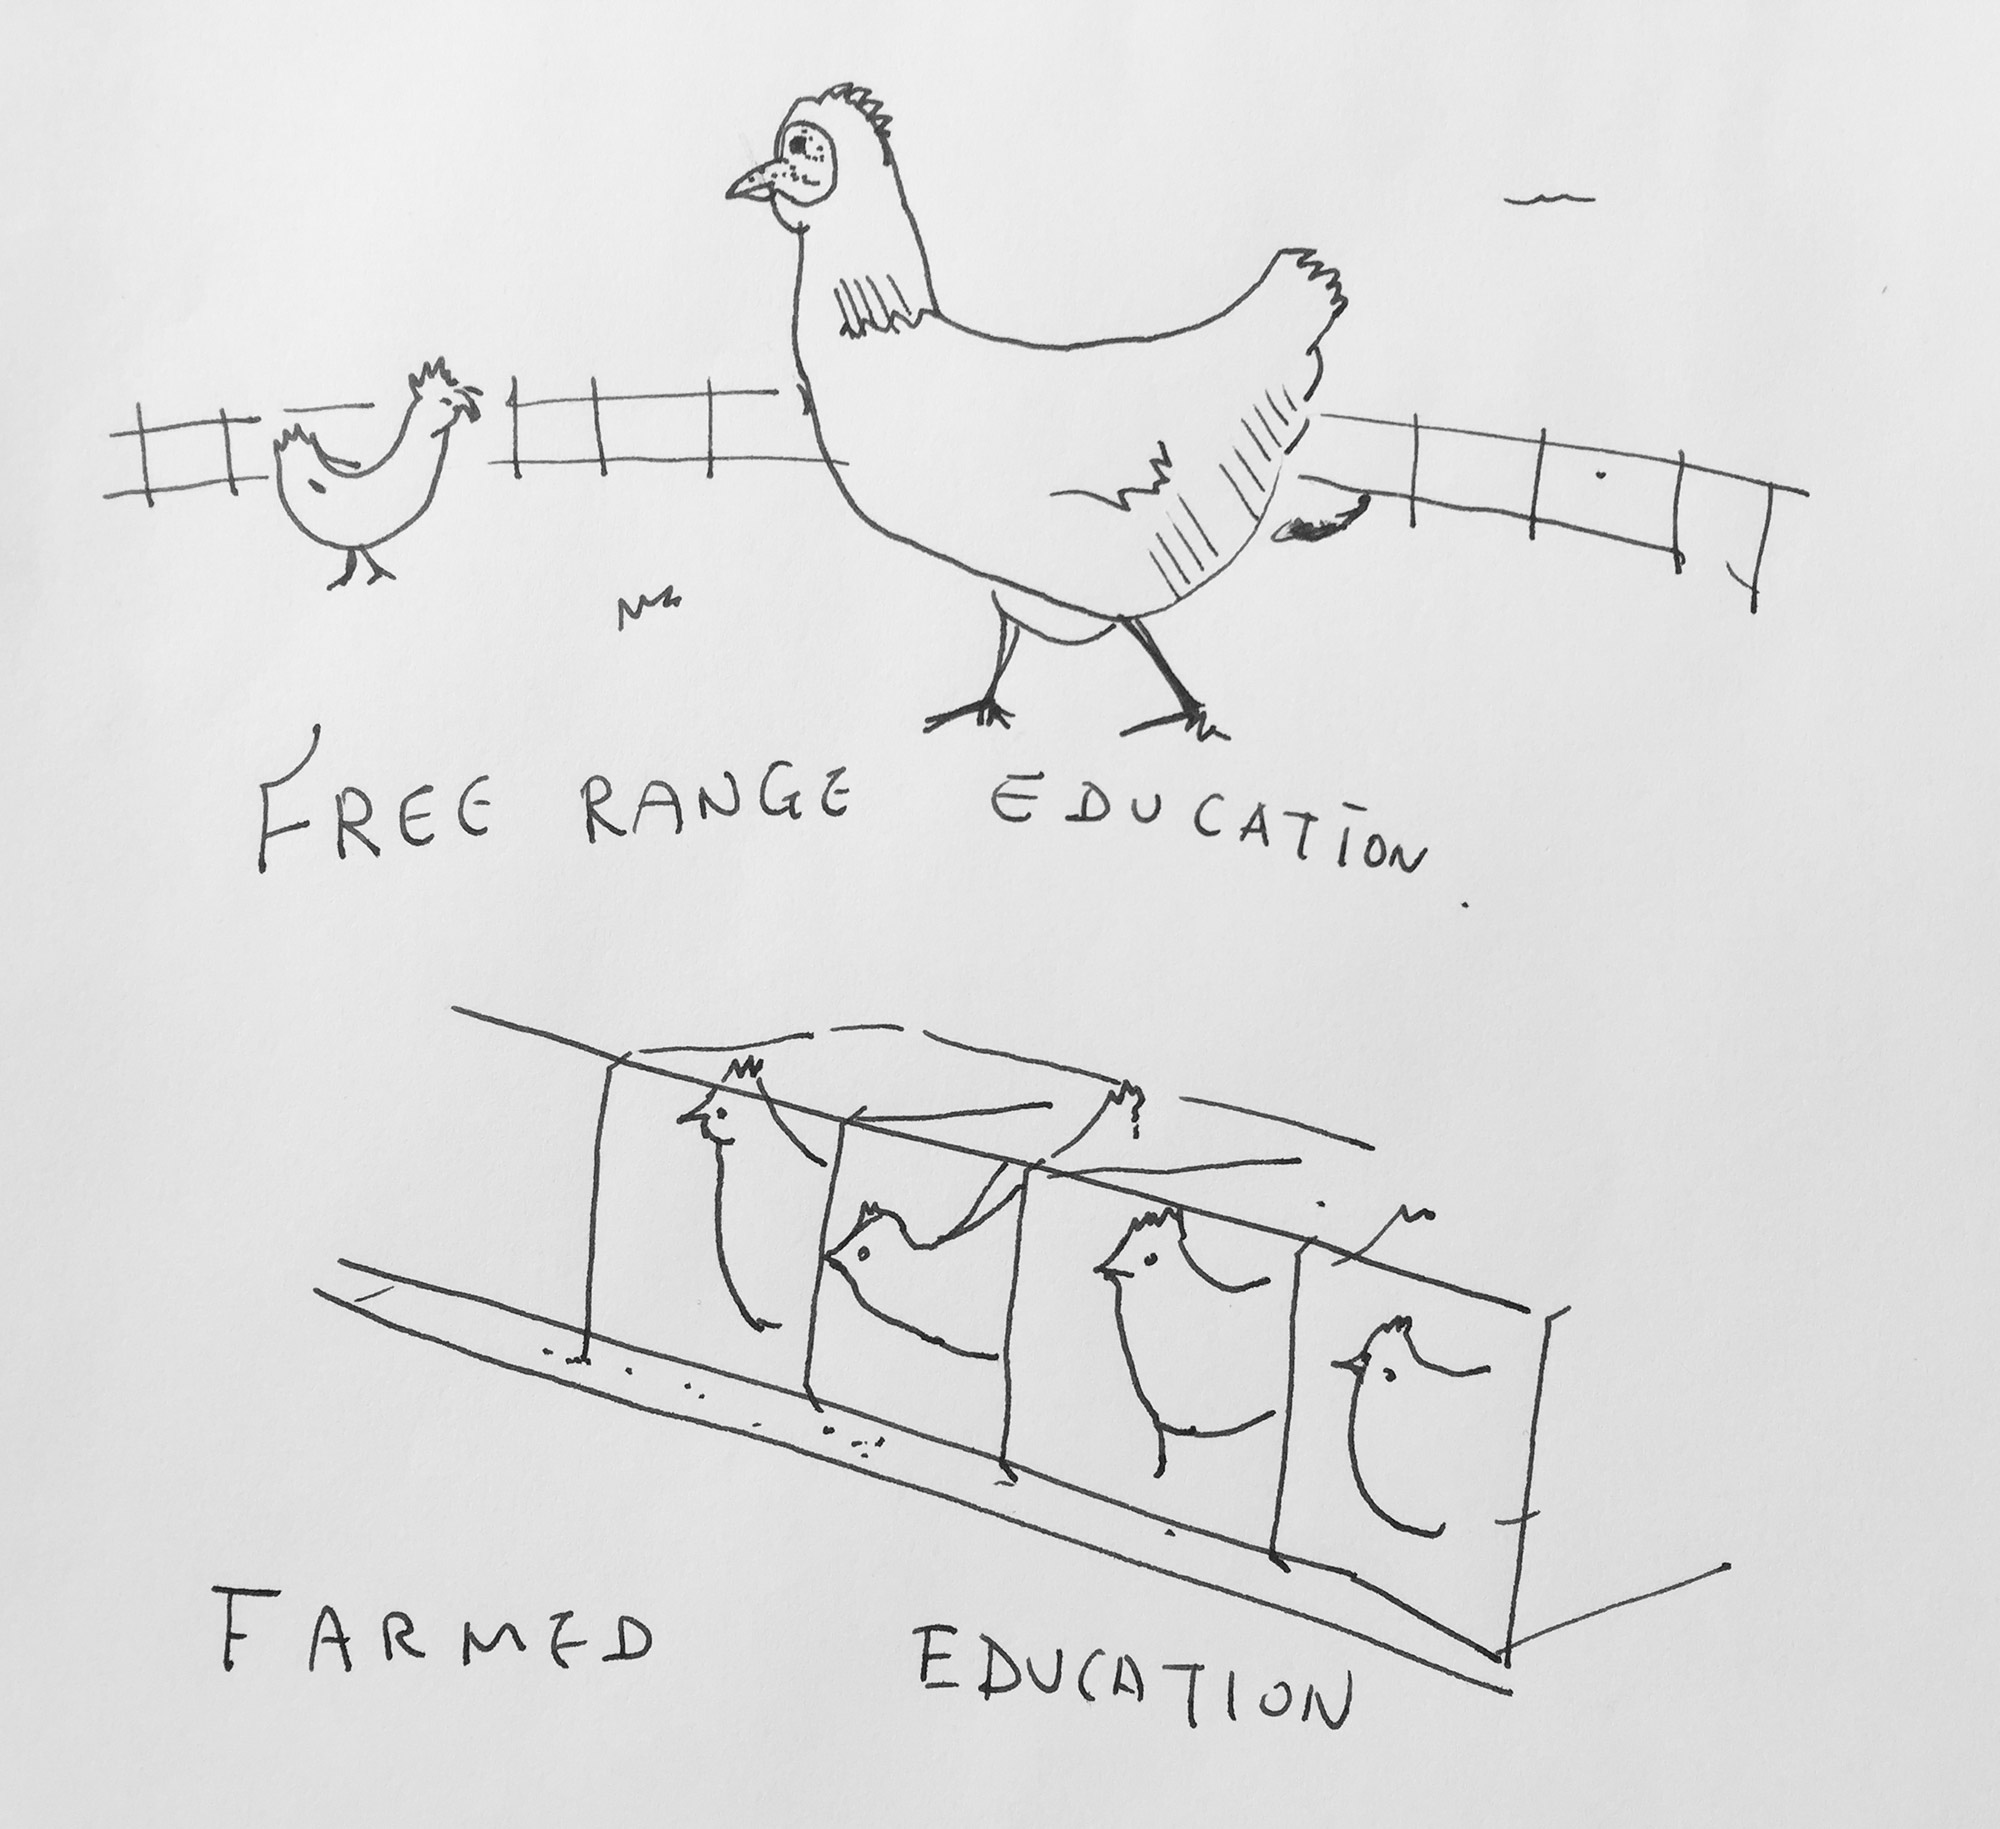 FREE RANGE EDUCATION
FARMED EDUCATION